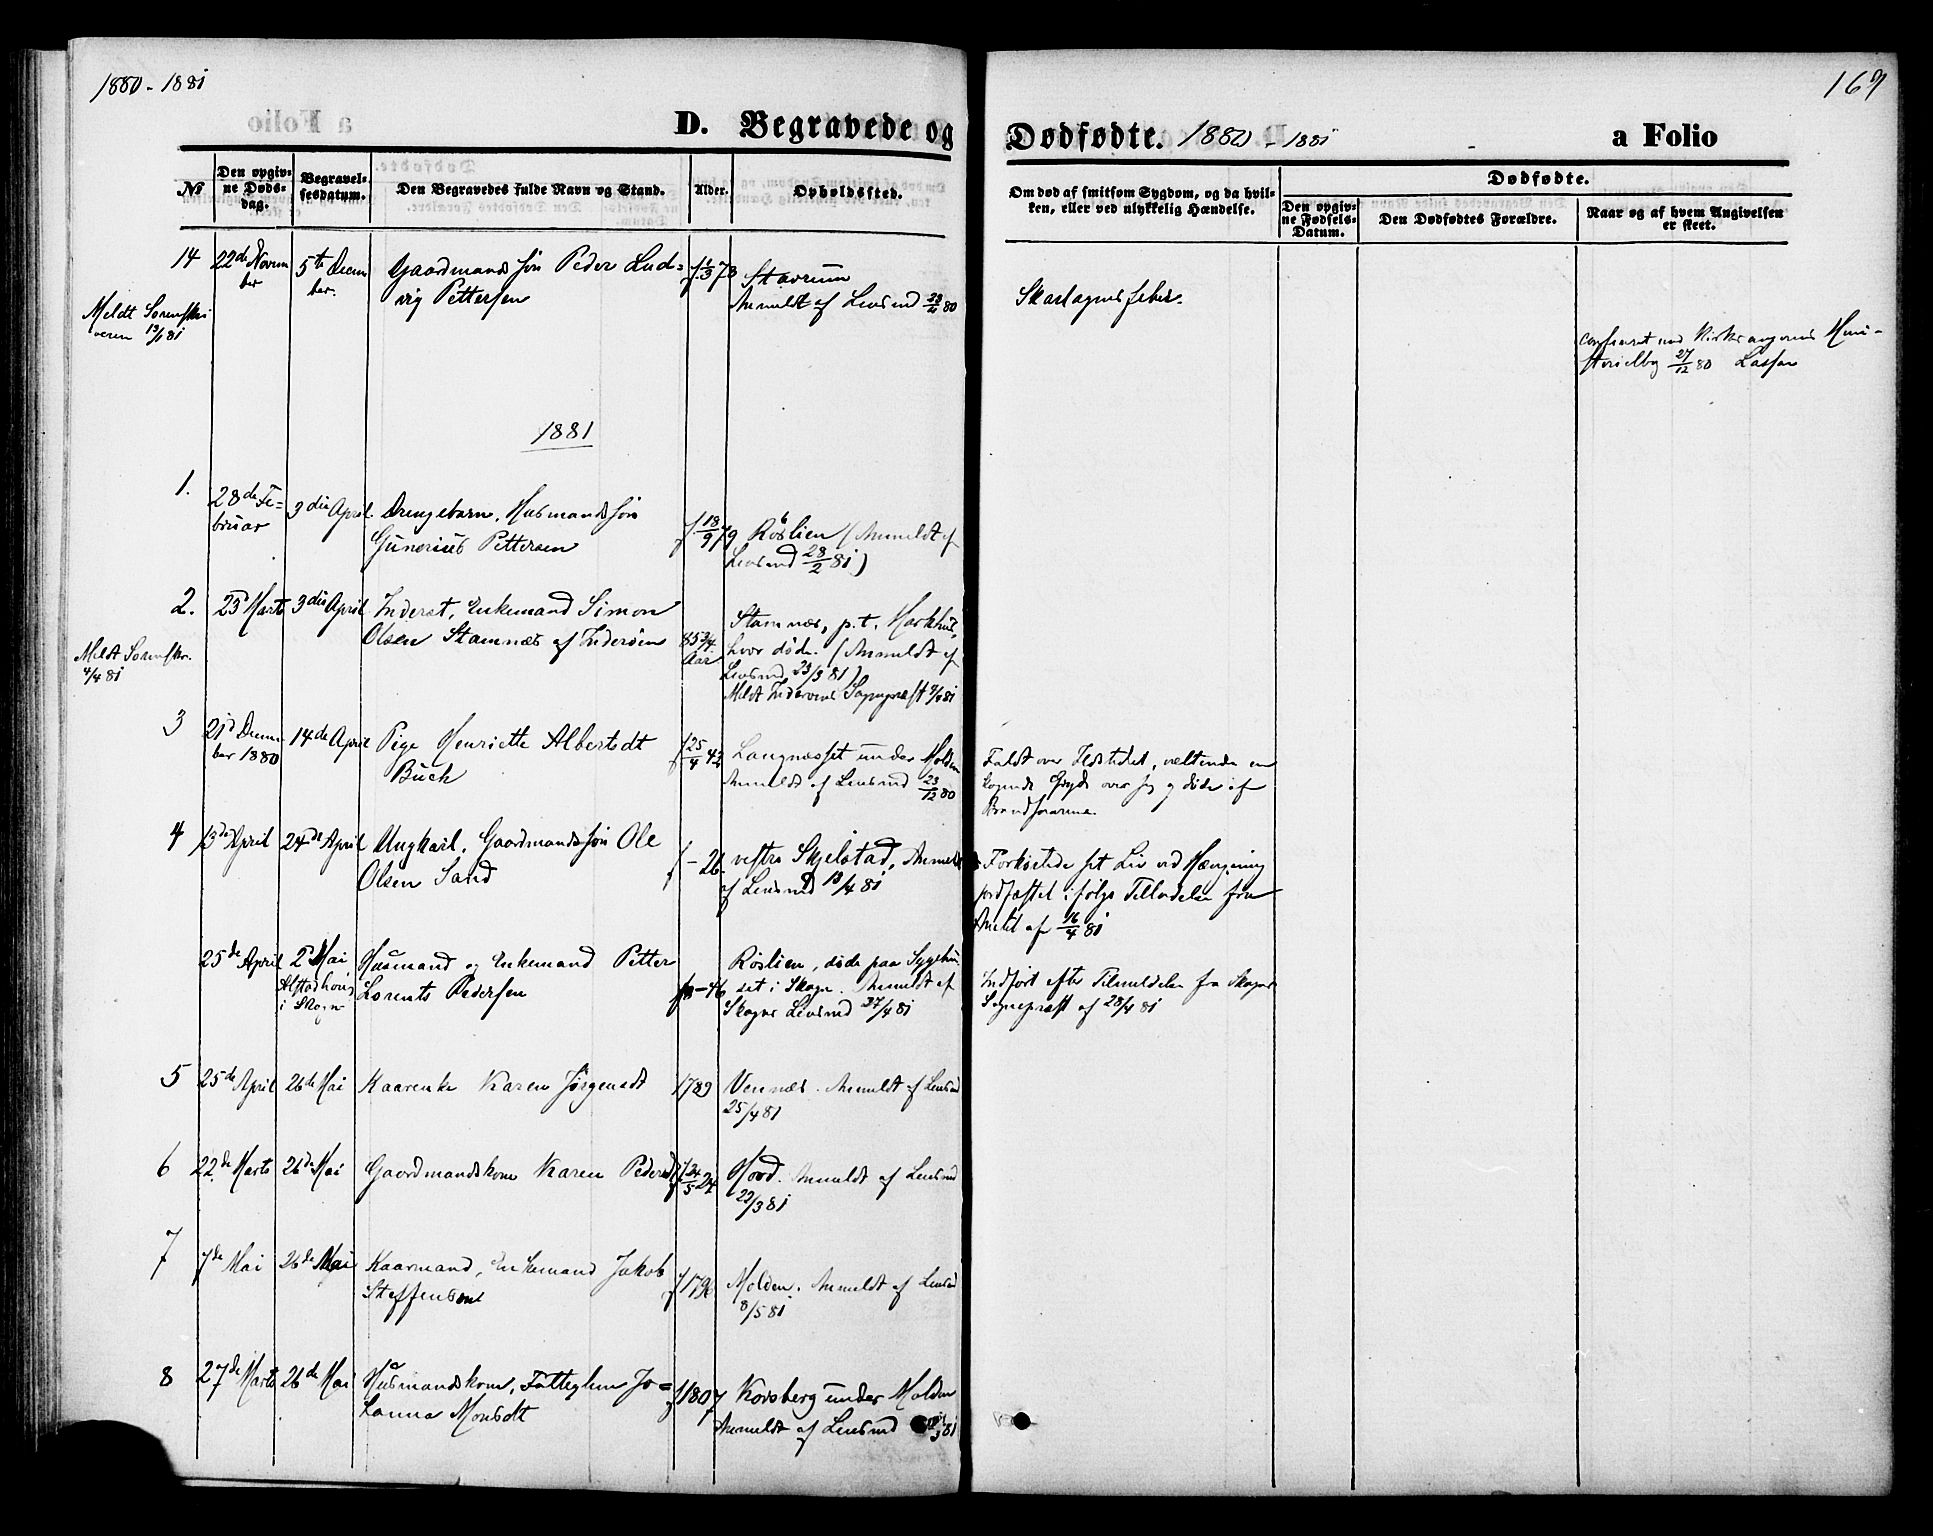 1880-1881
169
D. Begravede og
Dødfødte. 1880 - 1881
a Folio
No
Den opgiv-
ne Døds-
dag.
Begravel-
sesdatum.
Den Begravedes fulde Navn og Stand.
Alder.
Opholdssted.
Om død af smitsom Sygdom, og da hvil-
ken, eller ved ulykkelig Hændelse.
Dødfødte.
Den opgiv-
ne Fødsels-
Datum.
Den Dødfødtes Forældre.
Naar og af hvem Angivelsen
er skeet.
14
22de Novem
ber
5te Decem
ber.
Gaardmandssøn Peder Lud=
vig Pettersen
Stavrum
Anmeldt af Lensmd 80
Skarlagensfeber.
Meldt Sorenskri
veren 81
27/12 80
1881
1.
28de Fe=
bruar
3die April
Drengebarn, Husmandssøn
Gunerius Pettersen
f 18/9 79
Røslien (Anmeldt af
Lensmd 28/2 81)
2.
23 Marts
3die April
Inderst, Enkemand Simon
Olsen Stamnæs af Inderøen
85 3/4
Aar
Stamnæs, p.t. Markhus,
hvor døde. (Anmeldt af
Lensmd 23/3 81)
Meldt Inderøens Sognepræst
Meldt Sorenskr.
4/4 81
3
21d Decem
ber 1880
14de April
Pige Henriette Albertsdt
Buch
f 25/4 42
Langnæsset under Molden
Anmeldt af Lensmd 23/12 80
Faldt over Ildstedet, væltende en
kogende Gryde over sig og døde af
4
13de April
24de April
Ungkarl, Gaardmandssøn Ole
Olsen Sand
f - 26
vestre Skjelstad, Anmeldt
af Lensmd 13/4 81
Forkortede sit Liv ved Hængning
jordfæstet i følge Tilladelse fra
Amtet af 16/4 81
25de April
2 Mai
Alstadhoug
i Skogn
Husmand og Enkemand Petter
Lorents Pedersen
- 46
Røslien, døde paa Sygehu-
set i Skogn. Anmeldt af
Skogns Lensmd 27/4 81
Indført efter Tilmeldelse fra Skogns
Sognepræst af 28/4 81
5
25de April
26de Mai
Kaarenke Karen Jørgensdt
1789
Vennæs. Anmeldt af Lensmd
25/4 81
6
22de Marts
26de Mai
Gaardmandskone Karen Pedersdt
f 24/5 24
Anmeldt af Lensmd
22/3 81
7
7de Mai
26de Mai
Kaarmand, Enkemand Jakob
Steffensen
Molden. Anmeldt af Lensmd
8/5 81
8
27de Marts
26de Mai
Husmandskone, Fattiglem Jo=
hanna Monsdt
f 1807
Korsberg under Molden
Anmeldt af Lensmd